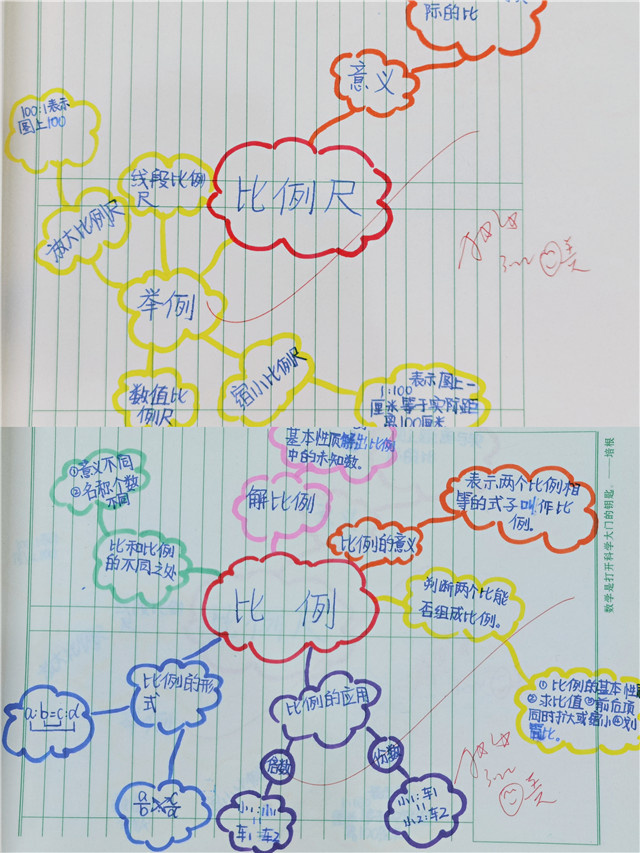 际的比
意义
100:1表示
图上100
线段比例
尺
比例尺
放大比例尺
举例
数值比
例尺
缩小比例尺
1:100 表示图上一
厘米等于实际距
离100厘米
基本性质解出比例
中的未知数。
解比例
①意义不同
②名称个数
不同
比和比例
的不同之处
比例的意义
表示两个比例相
等的式子叫作比
例。
比例
判断两个比能
否组成比例。
①比例的基本性质
②求比值③前后项
同时扩大或缩小④划
简比。
比例的形
式
a:b=c:d
a/b c/d
比例的应用
倍数
份数
小1:小2
=
车1:车2
小1:车1
=
小2:车2
数学是打开科学大门的钥匙。——培根
美
美